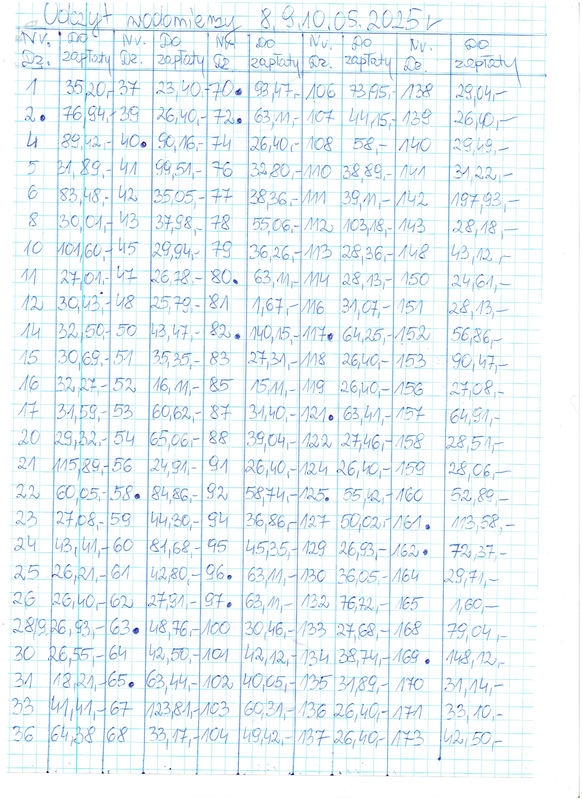 Odczyt wodomierzy 8,9,10.05.2025r
Nr. Dz. Do zapłaty Nr. Dz. Do zapłaty Nr Dz Do zapłaty Nr. Dz. Do zapłaty Nr. Dz. Do zapłaty
1 35,20,- 37 23,40,- 70. 93,47,- 106 73,95,- 138 29,04,-
2. 76,94,- 39 26,40,- 72. 63,11,- 107 44,15,- 139 26,40,-
4 89,42,- 40. 90,16,- 74 26,40,- 108 58,- 140 29,49,-
5 31,89,- 41 99,51,- 76 32,80,- 110 38,89,- 141 31,22,-
6 83,48,- 42 35,05,- 77 38,36,- 111 39,11,- 142 197,93,-
8 30,01,- 43 37,98,- 78 55,06,- 112 103,18,- 143 28,18,-
10 101,60,- 45 29,94,- 79 36,26,- 113 28,36,- 148 43,12,-
11 27,01,- 47 26,78,- 80. 63,11,- 114 28,13,- 150 24,61,-
12 30,43,- 48 25,79,- 81 1,67,- 116 31,07,- 151 28,13,-
14 32,50,- 50 43,47,- 82. 140,15,- 117. 64,25,- 152 56,86,-
15 30,69,- 51 35,35,- 83 27,31,- 118 26,40,- 153 90,47,-
16 32,27,- 52 16,11,- 85 15,11,- 119 26,40,- 156 27,08,-
17 31,59,- 53 60,62,- 87 31,40,- 121. 63,41,- 157 64,91,-
20 29,32,- 54 65,06,- 88 39,04,- 122 27,46,- 158 28,51,-
21 115,89,- 56 24,91,- 91 26,40,- 124 26,40,- 159 28,06,-
22 60,05,- 58. 84,86,- 92 58,74,- 125. 55,42,- 160 52,89,-
23 27,08,- 59 44,30,- 94 36,86,- 127 50,02,- 161. 113,58,-
24 43,41,- 60 81,68,- 95 45,35,- 129 26,93,- 162. 72,37,-
25 26,21,- 61 42,80,- 96. 63,11,- 130 36,05,- 164 29,71,-
26 26,40,- 62 27,31,- 97. 63,11,- 132 76,72,- 165 1,60,-
28/9 26,93,- 63. 48,76,- 100 30,46,- 133 27,68,- 168 79,04,-
30 26,55,- 64 42,50,- 101 42,12,- 134 38,74,- 169. 148,12,-
31 18,21,- 65. 63,44,- 102 40,05,- 135 31,89,- 170 31,14,-
33 41,41,- 67 123,81,- 103 60,31,- 136 26,40,- 171 33,10,-
36 64,38 68 33,17,- 104 49,42,- 137 26,40,- 173 42,50,-